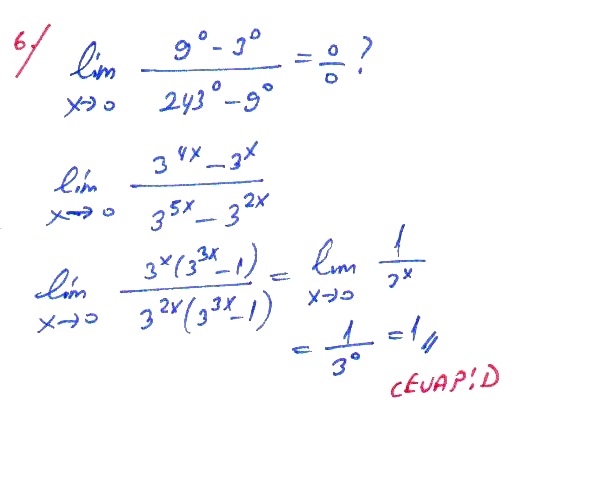 6.) lim x→0 (9^0 - 3^0) / (243^0 - 9^0) = 0/0 ?
lim x→0 (3^{4x} - 3^x) / (3^{5x} - 3^{2x})
lim x→0 3^x(3^{3x} - 1) / 3^{2x}(3^{3x} - 1) = lim x→0 1 / 3^x
= 1 / 3^0 = 1 //
CEVAP: D